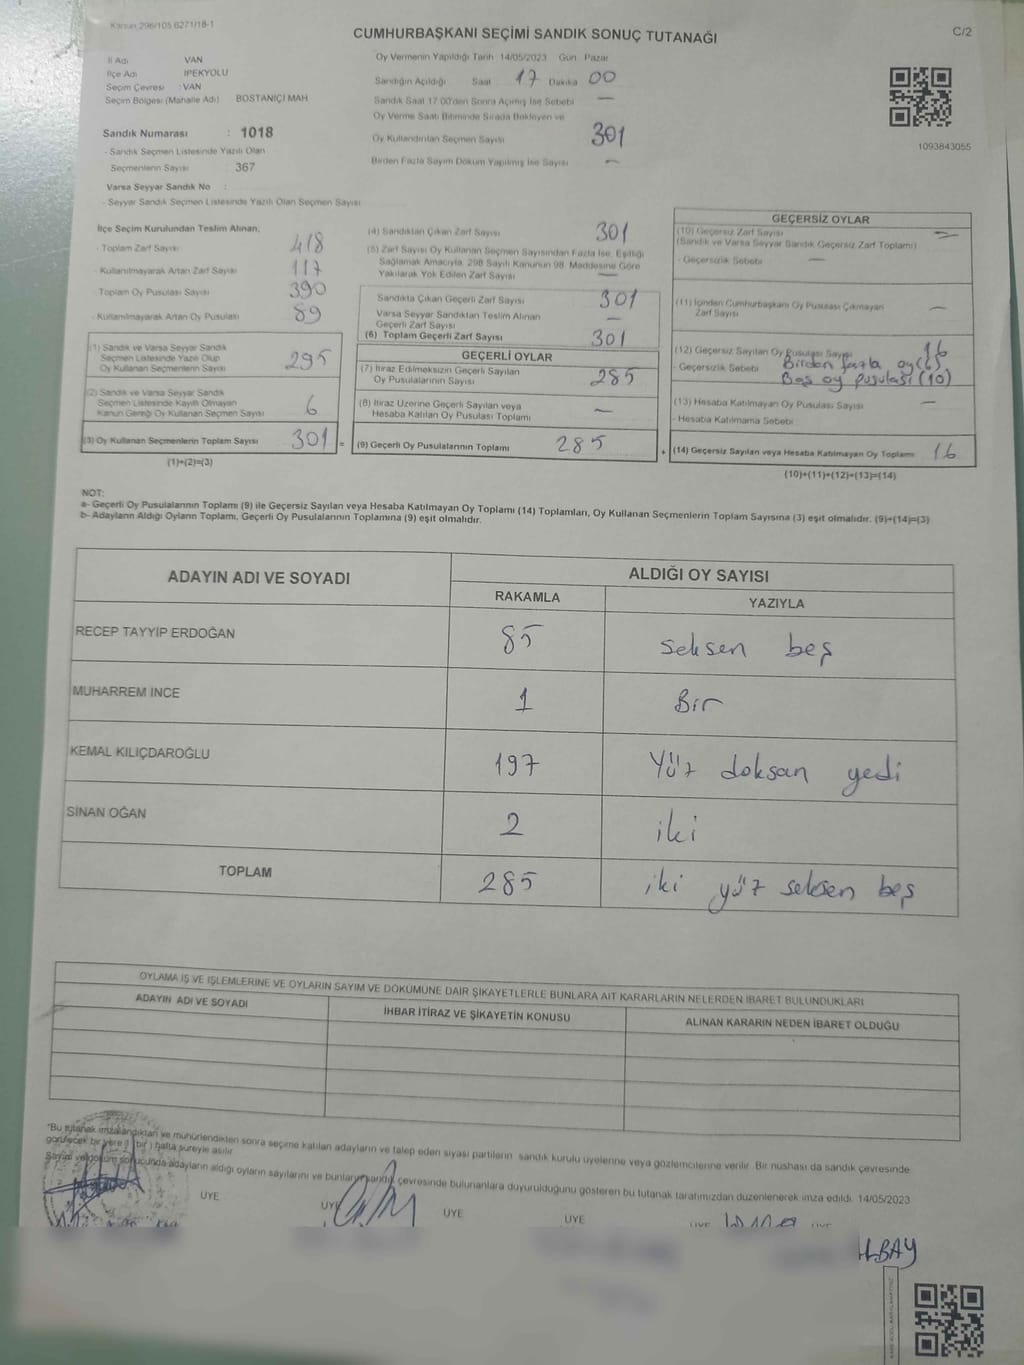 Kanun 296/105 6271/18-1
CUMHURBAŞKANI SEÇİMİ SANDIK SONUÇ TUTANAĞI
C/2
İl Adı VAN
İlçe Adı İPEKYOLU
Seçim Çevresi : VAN
Seçim Bölgesi (Mahalle Adı) BOSTANİÇİ MAH
Sandık Numarası : 1018
- Sandık Seçmen Listesinde Yazılı Olan
Seçmenlerin Sayısı 367
Varsa Seyyar Sandık No :
- Seyyar Sandık Seçmen Listesinde Yazılı Olan Seçmen Sayısı
Oy Vermenin Yapıldığı Tarih 14/05/2023 Gün Pazar
Sandığın Açıldığı Saat 17 Dakika 00
Sandık Saat 17.00'den Sonra Açılmış İse Sebebi —
Oy Verme Saati Bitiminde Sırada Bekleyen ve
Oy Kullandırılan Seçmen Sayısı 301
Birden Fazla Sayım Döküm Yapılmış İse Sayısı —
1093843055
İlçe Seçim Kurulundan Teslim Alınan,
- Toplam Zarf Sayısı 418
- Kullanılmayarak Artan Zarf Sayısı 117
- Toplam Oy Pusulası Sayısı 390
- Kullanılmayarak Artan Oy Pusulası 89
(1) Sandık ve Varsa Seyyar Sandık
Seçmen Listesinde Yazılı Olup
Oy Kullanan Seçmenlerin Sayısı 295
(2) Sandık ve Varsa Seyyar Sandık
Seçmen Listesinde Kayıtlı Olmayan
Kanun Gereği Oy Kullanan Seçmen Sayısı 6
(3) Oy Kullanan Seçmenlerin Toplam Sayısı 301 =
(1)+(2)=(3)
(4) Sandıktan Çıkan Zarf Sayısı 301
(5) Zarf Sayısı Oy Kullanan Seçmen Sayısından Fazla İse, Eşitliği
Sağlamak Amacıyla, 298 Sayılı Kanunun 98. Maddesine Göre
Yakılarak Yok Edilen Zarf Sayısı —
Sandıkta Çıkan Geçerli Zarf Sayısı 301
Varsa Seyyar Sandıktan Teslim Alınan
Geçerli Zarf Sayısı —
(6) Toplam Geçerli Zarf Sayısı 301
GEÇERLİ OYLAR
(7) İtiraz Edilmeksizin Geçerli Sayılan
Oy Pusulalarının Sayısı 285
(8) İtiraz Üzerine Geçerli Sayılan veya
Hesaba Katılan Oy Pusulası Toplamı —
(9) Geçerli Oy Pusulalarının Toplamı 285 +
GEÇERSİZ OYLAR
(10) Geçersiz Zarf Sayısı —
(Sandık ve Varsa Seyyar Sandık Geçersiz Zarf Toplamı)
- Geçersizlik Sebebi —
(11) İçinden Cumhurbaşkanı Oy Pusulası Çıkmayan
Zarf Sayısı —
(12) Geçersiz Sayılan Oy Pusulası Sayısı 16
- Geçersizlik Sebebi Birden fazla oy (6)
Boş oy pusulası (10)
(13) Hesaba Katılmayan Oy Pusulası Sayısı —
- Hesaba Katılmama Sebebi
(14) Geçersiz Sayılan veya Hesaba Katılmayan Oy Toplamı 16
(10)+(11)+(12)+(13)=(14)
NOT:
a- Geçerli Oy Pusulalarının Toplamı (9) ile Geçersiz Sayılan veya Hesaba Katılmayan Oy Toplamı (14) Toplamları, Oy Kullanan Seçmenlerin Toplam Sayısına (3) eşit olmalıdır. (9)+(14)=(3)
b- Adayların Aldığı Oyların Toplamı, Geçerli Oy Pusulalarının Toplamına (9) eşit olmalıdır.
ADAYIN ADI VE SOYADI
ALDIĞI OY SAYISI
RAKAMLA YAZIYLA
RECEP TAYYİP ERDOĞAN 85 seksen beş
MUHARREM İNCE 1 Bir
KEMAL KILIÇDAROĞLU 197 Yüz doksan yedi
SİNAN OĞAN 2 iki
TOPLAM 285 iki yüz seksen beş
OYLAMA İŞ VE İŞLEMLERİNE VE OYLARIN SAYIM VE DÖKÜMÜNE DAİR ŞİKAYETLERLE BUNLARA AİT KARARLARIN NELERDEN İBARET BULUNDUKLARI
ADAYIN ADI VE SOYADI
İHBAR İTİRAZ VE ŞİKAYETİN KONUSU
ALINAN KARARIN NEDEN İBARET OLDUĞU
"Bu tutanak imzalandıktan ve mühürlendikten sonra seçime katılan adayların ve talep eden siyasi partilerin sandık kurulu üyelerine veya gözlemcilerine verilir. Bir nüshası da sandık çevresinde
görülecek bir yere (bir) hafta süreyle asılır
Sayım ve döküm sonucunda adayların aldığı oyların sayılarını ve bunların sandık çevresinde bulunanlara duyurulduğunu gösteren bu tutanak tarafımızdan düzenlenerek imza edildi. 14/05/2023
ÜYE ÜYE ÜYE ÜYE